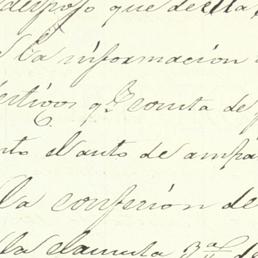 despojo que de ella
la informacion
testigos qe. consta de
nto el auto de ampa
la confesion de
la